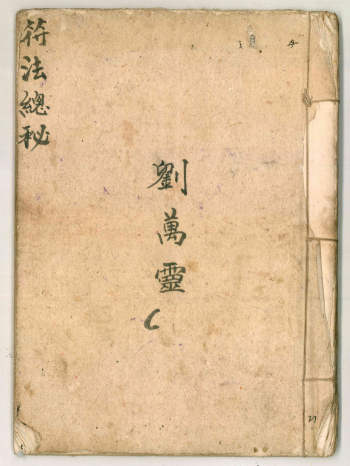 符法總秘
劉萬靈